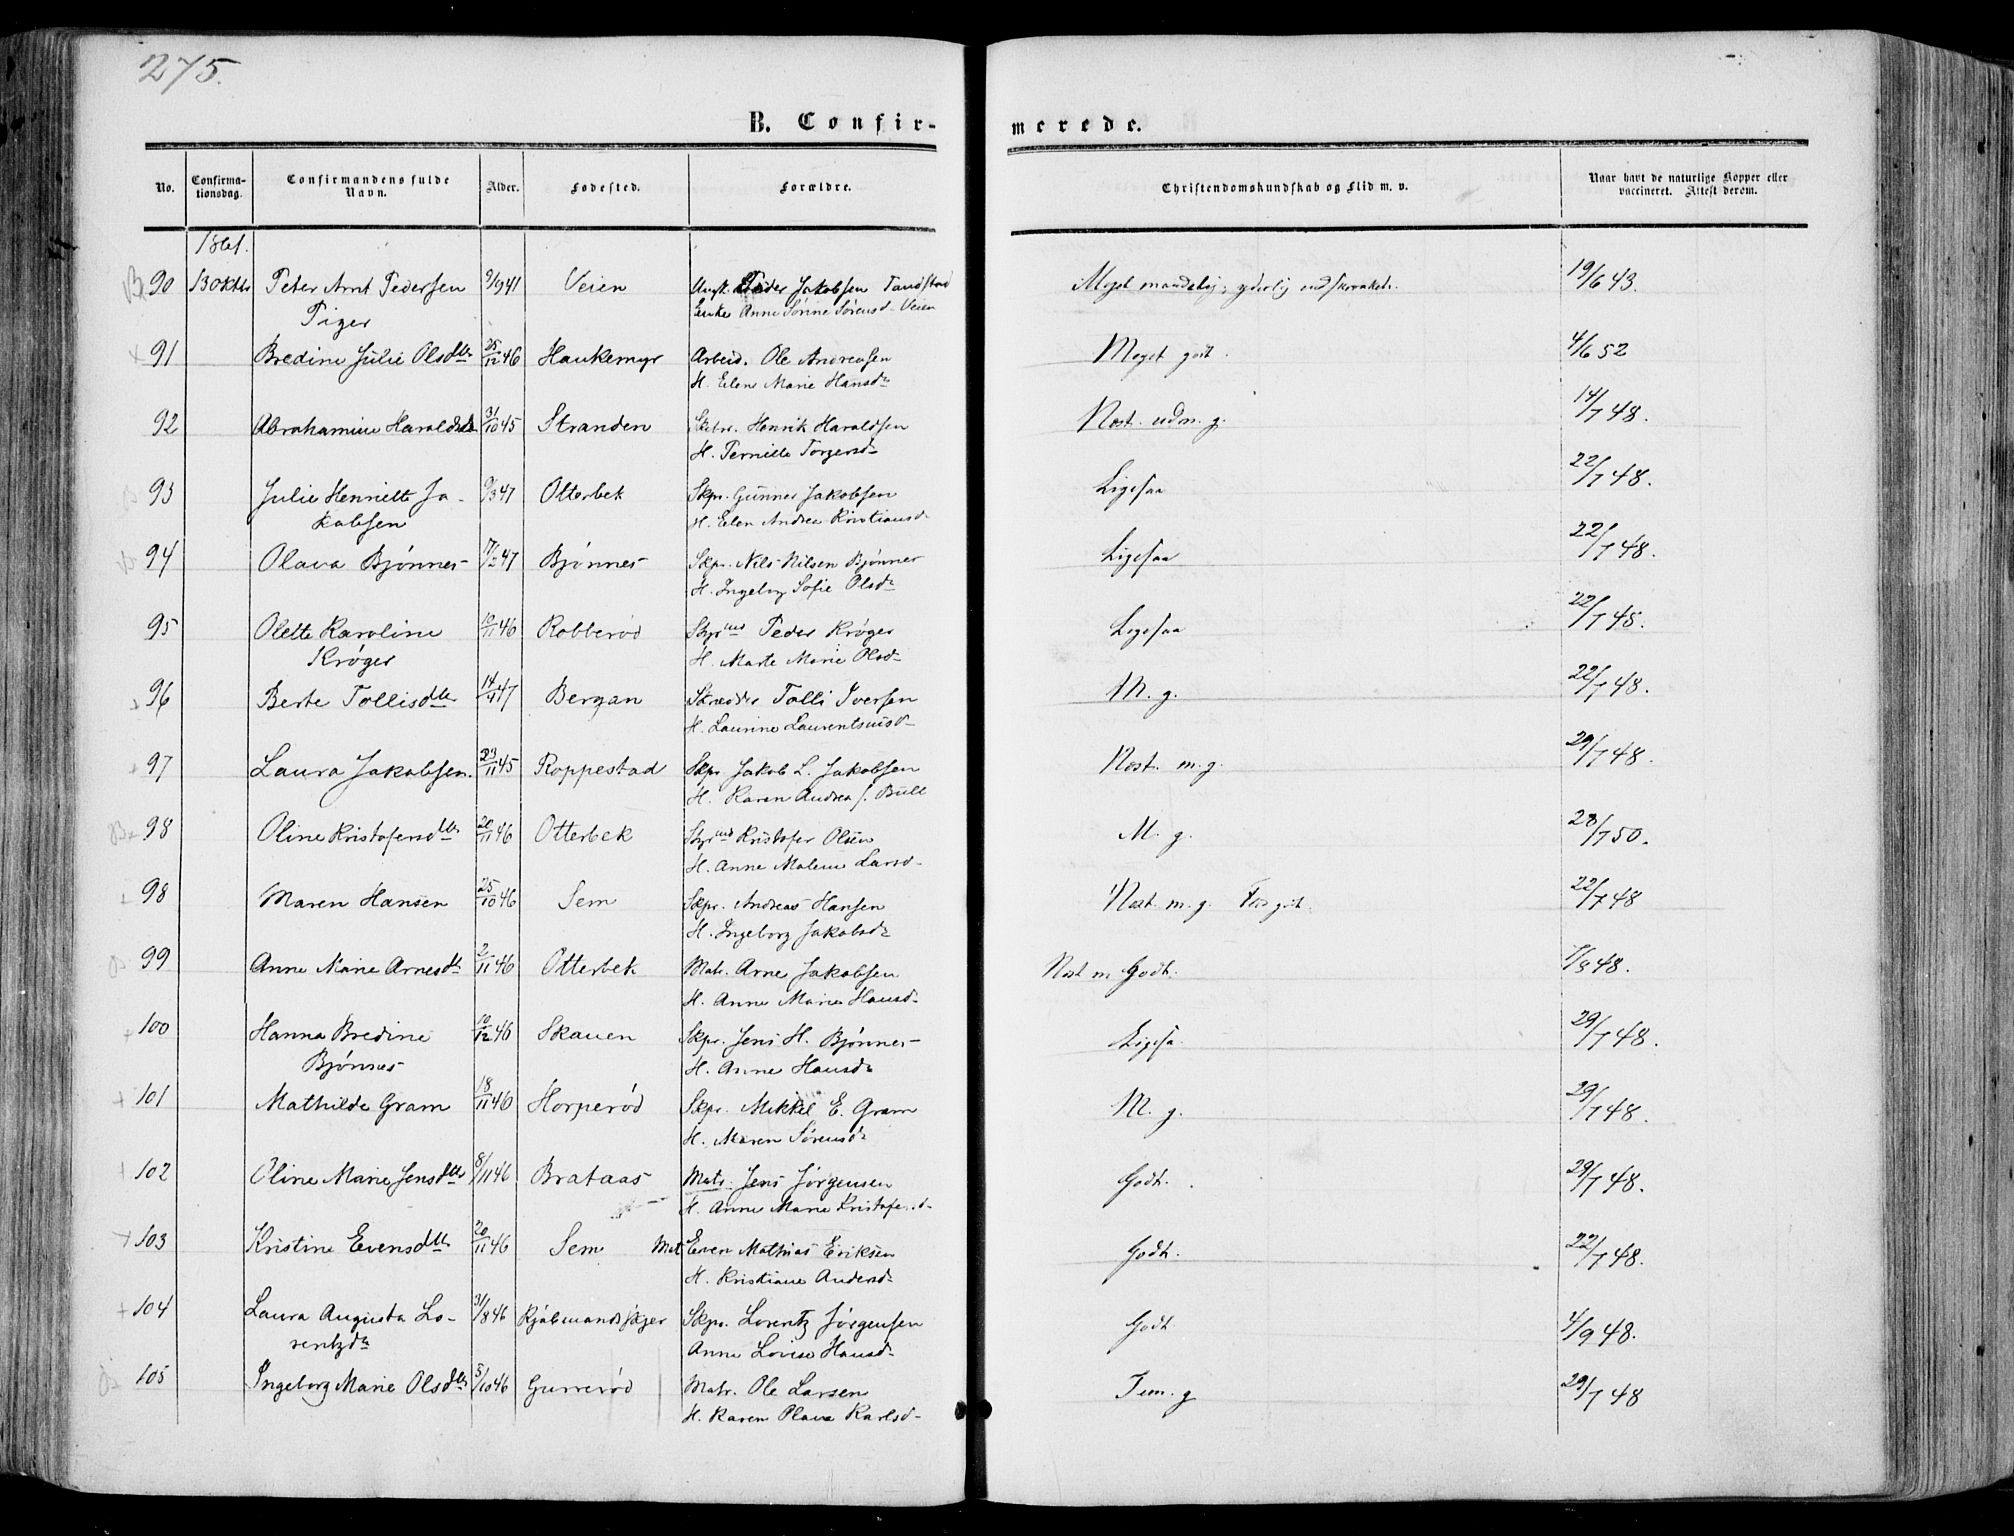 275.
B. Confir-
merede.
No. Confirma-tionsdag. Confirmandens fulde Navn. Alder. Fødested. Forældre. Christendomskundskab og Flid m. v. Naar havt de naturlige Kopper eller vaccineret. Attest derom.
1861.
90 13 Oktbr Peter Arnt Pedersen 9/9 41 Veien Ungk. Peder Jakobsen Tandstad 19/6 43.
Tiger Enke Anne Sørine Sørensd. Veien
91 Bredine Julie Olsdtr 25/12 46 Haukemyr Arbeid. Ole Andreasen Meget godt. 4/6 52
H. Elen Marie Hansdr
92 Abrahamine Haraldsdr 31/10 45 Stranden Henrik Haraldsen Næst. udm. g. 14/7 48.
H. Pernille Torgersd
93 Julie Henriette Ja- 9/3 47 Otterbek Skpr. Gunner Jakobsen Ligesaa 22/7 48.
kobsen H. Elen Andrea Kristiansd
94 Olava Bjønnes 17/2 47 Bjønnes Skpr. Nils Nilsen Bjønnes Ligesaa 22/7 48.
H. Ingeborg Sofie Olsdr
95 Olette Karoline 10/11 46 Robberød Styrmd Peder Krøger Ligesaa 22/7 48.
Krøger H. Marte Marie Olsd
96 Berte Tollisdtr 14/4 47 Bergan Skrædder Tolli Iversen M. g. 22/7 48.
H. Laurine Laurentsuisd
97 Laura Jakobsen. 23/11 45 Roppestad Skpr Jakob L. Jakobsen Næst. m. g. 29/7 48.
H. Karen Andrea f. Bull
98 Oline Kristofersdtr 20/11 46 Otterbek Styrmd Kristofer Olsen M. g. 28/7 50.
H. Anne Malene Larsd
98 Maren Hansen 25/10 46 Sem Skpr. Andreas Hansen Næst. m. g. 22/7 48
H. Ingeborg Jakobsdr
99 Anne Marie Arnesdtr 2/11 46 Otterbek Matr. Arne Jakobsen Næst m Godt. 48.
H. Anne Marie Hansd
100 Hanna Bredine 10/12 46 Skauen Skpr. Jens H. Bjønnes Ligesa. 29/7 48.
Bjønnes H. Anne Hansdr
101 Mathilde Gram 18/11 46 Horperød Skpr. Mikkel E. Gram M. g. 29/7 48.
H. Maren Sørensdr
102 Oline Marie Jensdtr 8/11 46 Brataas Matr. Jens Jørgensen Godt. 29/7 48.
H. Anne Marie Kristofersd
103 Kristine Evensdtr 20/11 46 Sem Mat Even Mathias Eriksen Godt. 22/7 48.
H. Kristiane Andersdr
104 Laura Augusta Lo- 31/8 46 Kjøbmandskjer Skpr. Lorentz Jørgensen Godt 4/9 48.
rentzdr Anne Lovise Hansdr
105 Ingeborg Marie Olsdtr 5/10 46 Gurrerød Matr. Ole Larsen Tem. g 29/7 48
H. Karen Olava Karlsd